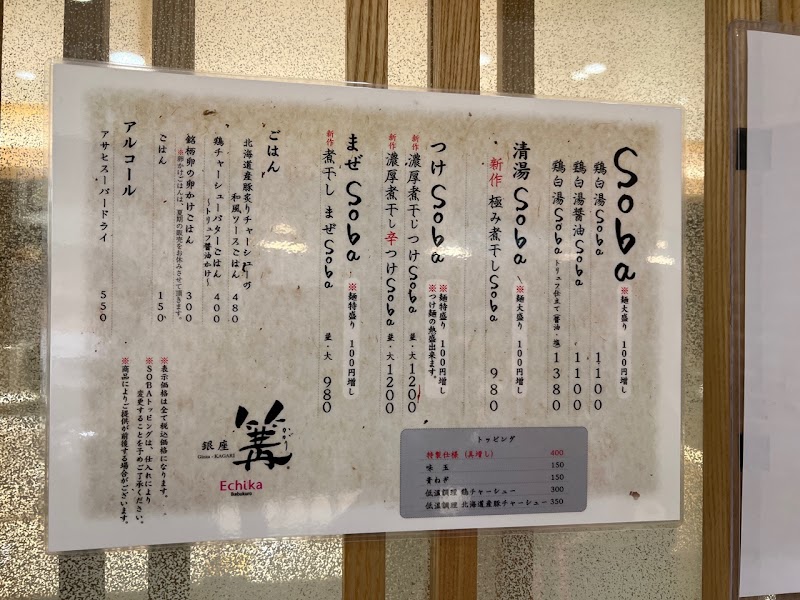 Soba ※麺大盛り 100円増し
鶏白湯Soba 1100
鶏白湯醤油Soba 1100
鶏白湯Soba トリュフ仕立て醤油・塩 1380
清湯Soba ※麺大盛り 100円増し
新作 極み煮干しSoba 980
つけSoba ※麺特盛り 100円増し
※つけ麺の熱盛出来ます。
濃厚煮干しつけSoba 並・大 1200
新作 濃厚煮干し辛つけSoba 並・大 1200
まぜSoba ※麺特盛り 100円増し
新作 煮干しまぜSoba 並・大 980
ごはん
北海道産豚炙りチャーシューの
和風ソースごはん 480
鶏チャーシューバターごはん 400
～トリュフ醤油かけ～
銘柄卵の卵かけごはん 300
※卵かけごはんは、夏期の販売をお休みさせて頂きます。
ごはん 150
アルコール
アサヒスーパードライ 550
※表示価格は全て税込価格になります。
※SOBAトッピングは、仕入れにより
変更することを予めご了承ください。
※商品によりご提供が前後する場合がございます。
銀座 篝 かがり
Ginza・KAGARI
Echika
Ikebukuro
トッピング
特製仕様（具増し） 400
味玉 150
青ねぎ 150
低温調理 鶏チャーシュー 300
低温調理 北海道産豚チャーシュー 350